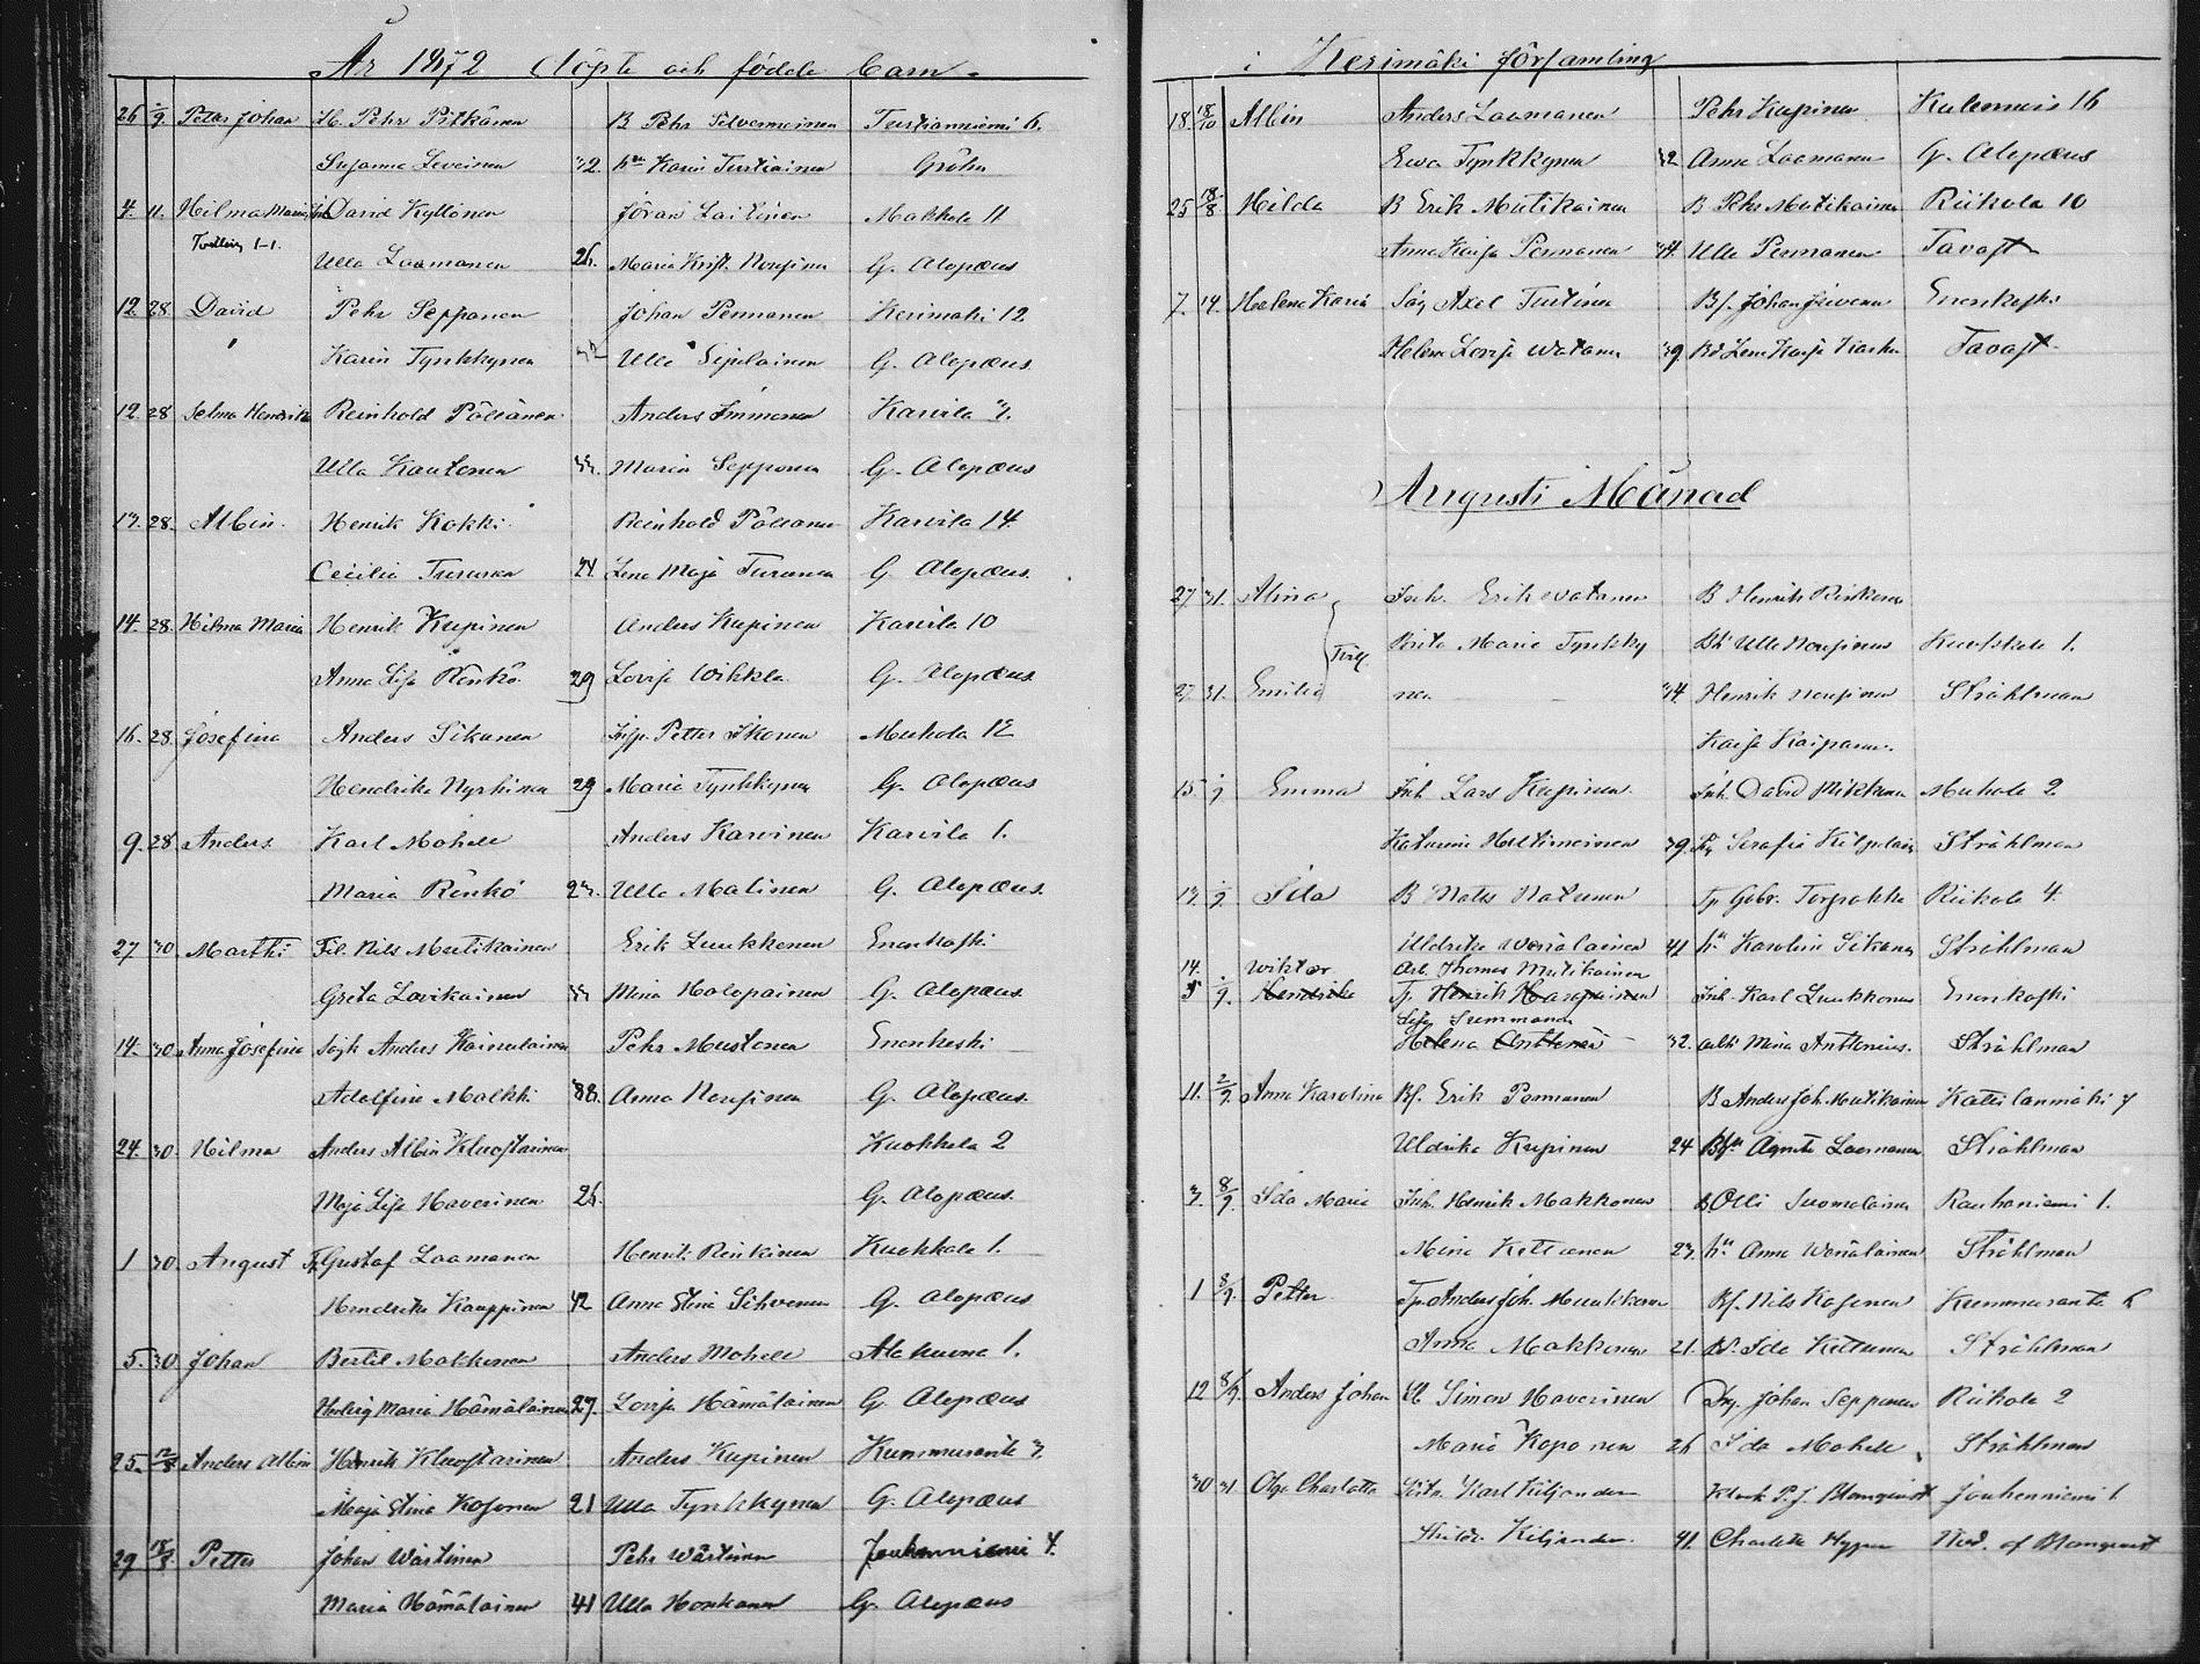 År 1872 döpte och födde barn.
26 ./9. Petter Johan H. Pehr Pitkänen B Pehr Silvenneinen Turtianniemi 6.
Susanna Leveinen 32. hu Karin Turtiainen Gröhn
4. 11. Hilma Maria David Kyllönen Jöran Laitinen Makkola 11
Ulla Laamanen 26. Maria Krist. Nousinen G. Alopæus
12. 28. David Pehr Seppänen Johan Pennanen Kerimäki 12
Karin Tynkkynen 32 Ulla Sipilainen G. Alopæus
12. 28 Selma Hendrika Reinhold Pöllänen Anders Immonen Karvila 3.
Ulla Kautonen 33. Maria Sepponen G. Alopæus
13. 28. Albin Henrik Kokki Reinhold Pöllänen Karvila 14
Cecilia Turunen 24 Lena Maja Turunen G Alopæus.
14. 28. Hilma Maria Henrik Kupinen Anders Kupinen Karvila 10
Anna Lisa Rönkö 29 Lovisa Wihkla G. Alopæus.
16. 28. Josefina Anders Sikanen Petter Ikonen Muhola 12
Hendrika Nyrhinen 29 Maria Tynkkynen G. Alopæus
9. 28 Anders Karl Mohell Anders Karvinen Karvila 1.
Maria Rönkö 23. Ulla Malinen G. Alopæus.
27 30. Martti Nils Mutikainen Erik Luukkonen Enonkoski
Greta Lavikainen 33 Mina Holopainen G. Alopæus.
14. 30. Anna Josefina Anders Hainulainen Pehr Mustonen Enonkoski
Adolfina Malkki 38. Anna Nousinen G. Alopæus.
24. 30. Hilma Anders Albin Kluostarinen Kuokkala 2
Maja Lisa Haverinen 26. G. Alopæus.
1 30. August Gustaf Laamanen Henrik Rinkinen Kuokkala 1.
Hendrika Kauppinen 42 Anna Stina Sihvonen G. Alopæus
5. 30 Johan Bertil Makkonen Anders Mohell Alakuona 1.
Maria Hämäläinen 27. Lovisa Hämäläinen G. Alopæus
25. 12/8 Anders Albin Henrik Kluostarinen Anders Kupinen Kummuranta 3.
Maja Stina Kosonen 21 Ulla Tynkkynen G. Alopæus
29 18/8. Petter Johan Wärtinen Pehr Wärtinen Jouhenniemi 4.
Maria Hämäläinen 41 Ulla Honkanen G. Alopæus
i Kerimäki församling
18. 18/10 Albin Anders Laamanen Pehr Kupinen Kulennois 16
Ewa Tynkkynen 42 Anna Laamanen G. Alopæus
25 18/8 Hilda B Erik Mutikainen B Pehr Mutikainen Riikola 10
Anna Kaisa Pennanen 34. Ulla Pennanen Tavast
7. 14. Helena Karin Axel Turtinen Johan Enonkoski
Helena Lovisa Watanen 39. Lena Kaisa Tavast
Augusti Månad
27 31. Alina Inh. Erik Watanen B Henrik Rinkinen
Brita Maria Tynkky Ulla Nousinen Kuokkala 1.
27. 31. Emilia nen 34 Henrik Nousinen Stråhlman
Kaisa
15. ./9 Emma Inh. Lars Kupinen Inh. David Mikkonen Muhola 2
Katarina 39. Serafia Stråhlman
13. ./9. Ida B Mats Natunen Gabr. Torpakka Riikola 4.
Uldrika Wenäläinen 41 hu Karolina Sikanen Stråhlman
14. Wiktor Arb. Thomas Mutikainen
5 ./9. Hendrika Henrik Inh. Karl Luukkonen Enonkoski
Lisa Summanen
Helena Anttonen 32. Mina Anttonen Stråhlman
11. 2/9. Anna Karolina Bf. Erik Pennanen B Anders Joh. Mutikainen Kattilanmäki 7
Uldrika Kupinen 24 Agneta Laamanen Stråhlman
3. 8/9. Ida Maria Inh. Henrik Makkonen B. Olli Suomalainen Rauhaniemi 1.
Mina Kettunen 23. hu Anna Wenäläinen Stråhlman
1 8/9. Petter Anders Joh. Muukkonen Bf. Nils Kosonen Kummuranta 6
Anna Makkonen 21. Ida Kettunen Stråhlman
12 8/9. Anders Johan Simon Haverinen Johan Seppänen Riikola 2
Maria Koponen 26 Ida Mohell Stråhlman
30 31 Olga Charlotta Karl Kiljander Klock P. J. Blomqvist Jouhenniemi 1
Kiljander 41. Charlotta Nöd. af Blomqvist